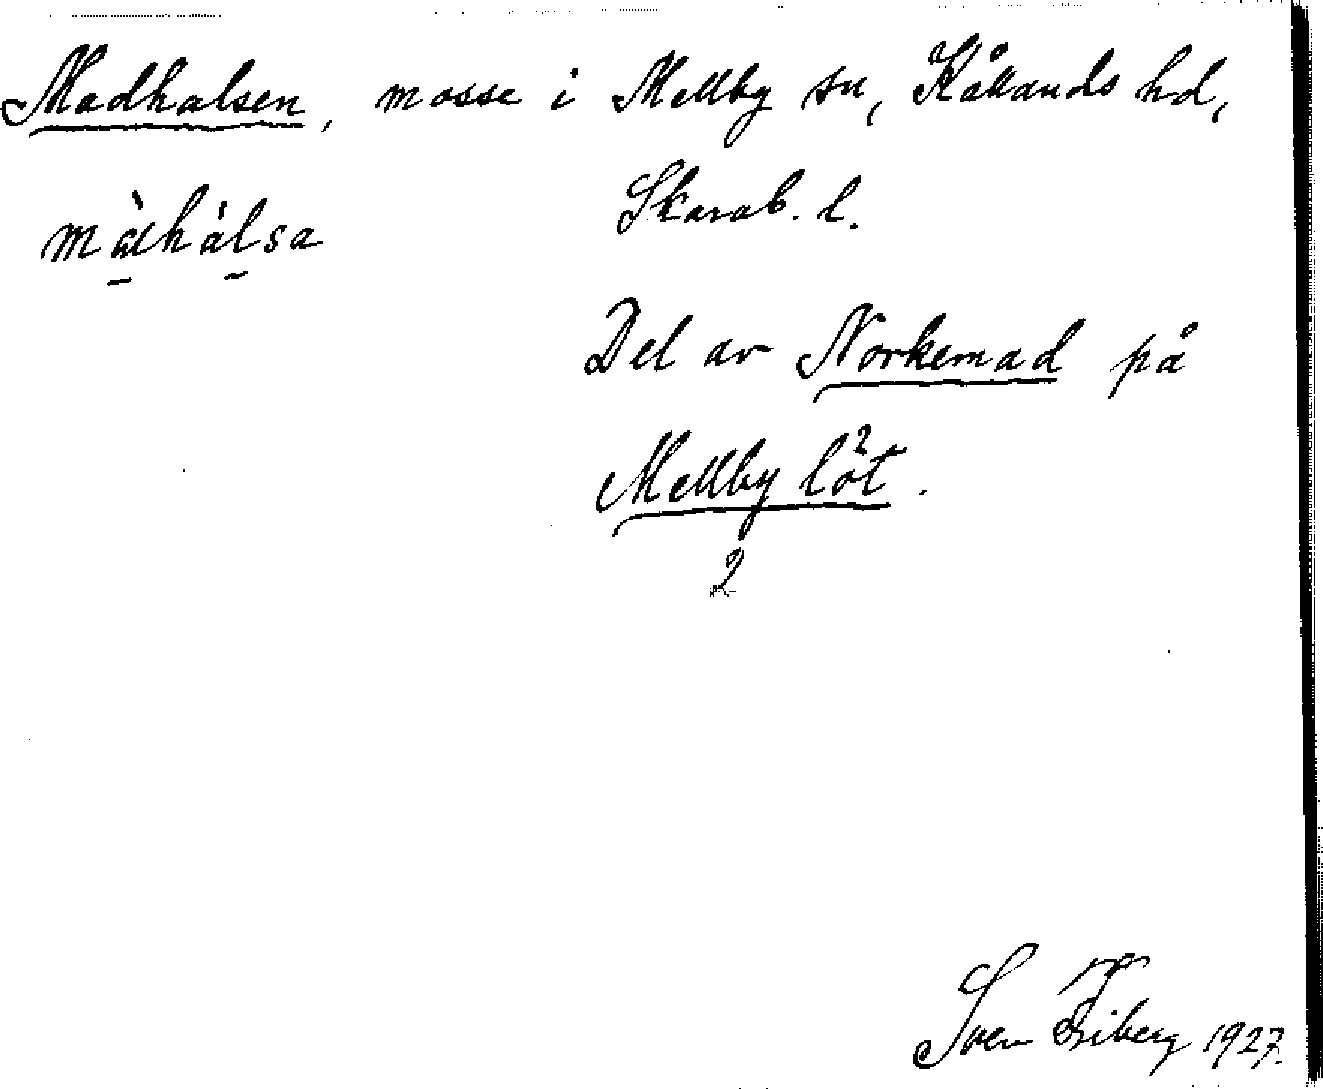 Madhalsen, mosse i Mellby sn, Kållands hd,
Skarab. l.
màhàlsa
Del av Norkemad på
Mellby löt.
2
Sven Friberg 1927.